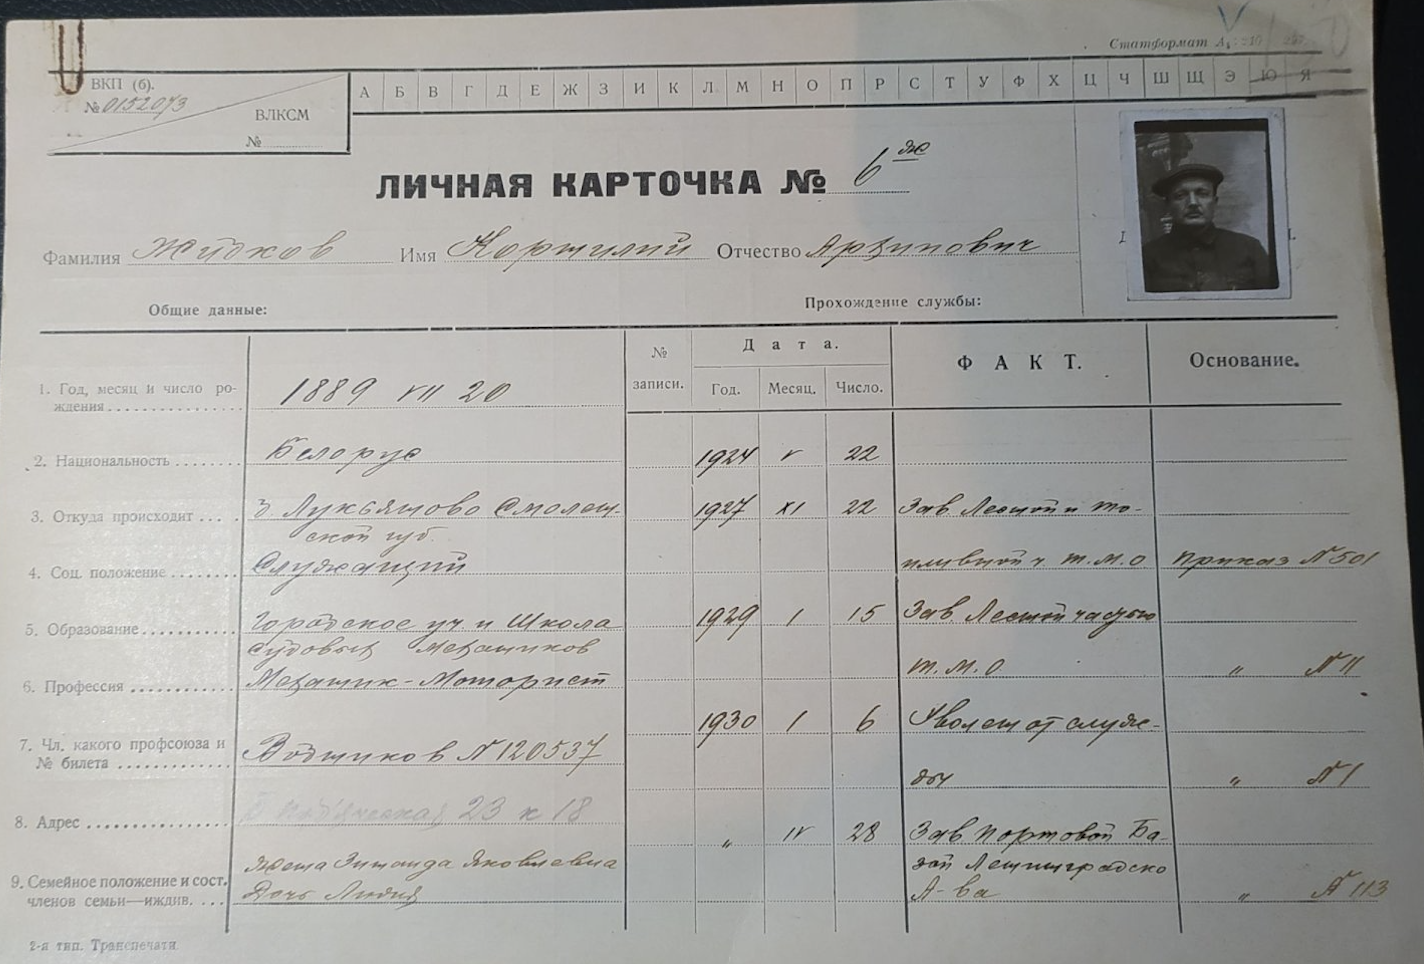 Статформат А₄
ВКП (б).
№ 0152073
ВЛКСМ
№
А Б В Г Д Е Ж З И К Л М Н О П Р С Т У Ф Х Ц Ч Ш Щ Э Ю Я
ЛИЧНАЯ КАРТОЧКА № 6
Фамилия Жидков Имя Корнилий Отчество
Общие данные:
Прохождение службы:
№ записи.
Дата.
Год. Месяц. Число.
ФАКТ.
Основание.
1. Год, месяц и число ро-
ждения
1889 VII 20
2. Национальность Белорус
1924 V 22
3. Откуда происходит Смолен-
ской губ.
1927 XI 22 Зав Лесной и то-
4. Соц. положение Служащий
пливной ч. Т.М.О Приказ N 501
5. Образование Городское уч. и Школа
судовых механиков
1929 I 15 Зав. Лесной частью
6. Профессия Механик-Моторист
Т.М.О " N 11
1930 I 6 Уволен от служ-
7. Чл. какого профсоюза и
№ билета
Водников N 120537
бы " N 1
8. Адрес 23 к 18
" IV 28 Зав Портовой Ба-
зой Ленинградско
9. Семейное положение и сост.
членов семьи—иждив.
жена Зинаида Яковлевна
Дочь Лидия
" N 113
2-я тип. Транспечати